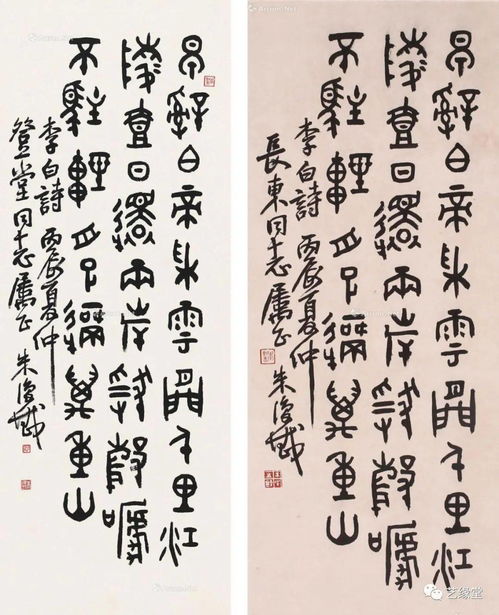 朝辭白帝采雲間千里江
陵壹日還兩岸猿聲嗁
不駐輕舟已過萬重山
李白詩 丙辰夏仲
堂同志屬正 朱復戡
朝辭白帝采雲間千里江
陵壹日還兩岸猿聲嗁
不駐輕舟已過萬重山
李白詩 丙辰夏仲
長東同志屬正 朱復戡
艺缘堂